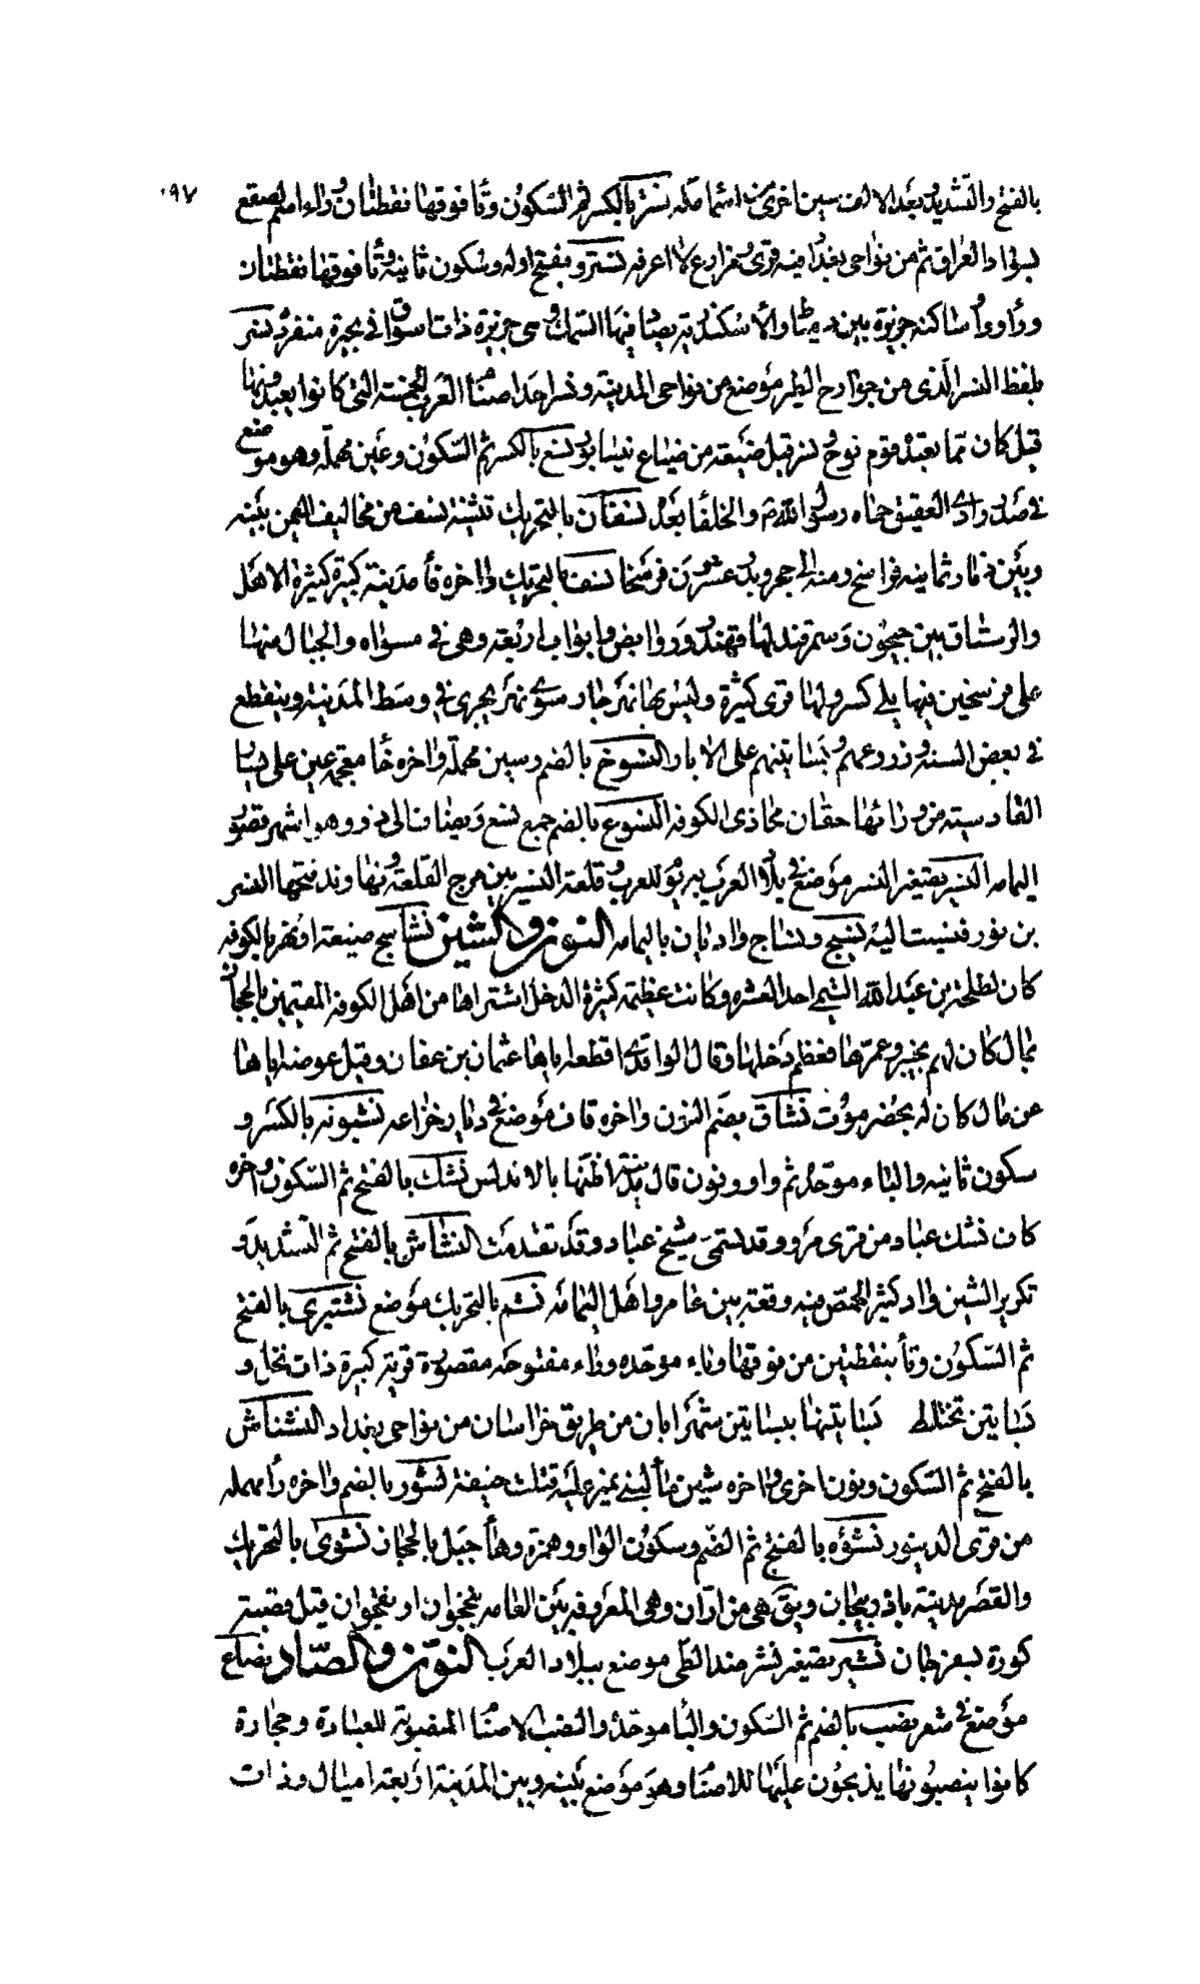 ٠٩٧
بالفتح والتشديد وبعد الالف سين اخرى من اسما مكه نستر بالكسر ثم السكون وتا فوقها نقطتان وراء اسم لصقع
بسواد العراق ثم من نواحى بغداد فيه قرى ومزارع لا اعرفه نسترو بفتح اوله وسكون ثانيه وتا فوقها نقطتان
وراء وواو ساكنه جزيرة بين دمياط والاسكندرية يصاد فيها السمك وهى جزيرة ذات اسواق فى بحيرة منفردة نسر
بلفظ النسر الذى من جوارح الطير موضع من نواحى المدينه ونسر احد اصنام العرب الخمسة التى كانوا يعبدونها
قيل كان مما يعبده قوم نوح نسر قيل ضيعة من ضياع نيسابور نسع بالكسر ثم السكون وعين مهملة وهو موضع
فى صدر وادى العقيق حماه رسول الله م والخلفا بعده نسفان بالتحريك تثنية نسف من مخاليف اليمن بينه
وبين ذمار ثمانيه فراسخ ومنه الى حجر وبدر عشرون فرسخا نسف بالتحريك واخره فا مدينة كبيرة كثيرة الاهل
والرستاق بين جيحون وسمرقند لها قهندز وربض وابواب اربعة وهى فى مستواه والجبال منها
على فرسخين فيها يلى كس ولها قرى كثيرة وليس بها نهر جار سوى نهر يجرى فى وسط المدينة وينقطع
فى بعض السنة وزروعهم وبساتينهم على الابار النسوخ بالضم وسين مهملة واخره خا معجمه عين على يسار
القادسية من ورائها خفان محاذى الكوفه النسوع بالضم جمع نسع ويضاف الى ذو وهو اشهر قصور
اليمامه النسير تصغير النسر موضع فى بلاد العرب وقلعة النسير بين مرج القلعة ونهاوند فتحها النسير
بن ثور فنسبت اليه نسيج ونساج واديان باليمامه النون والشين نشاستج ضيعة او نهر بالكوفه
كان لطلحة بن عبد الله التيمى احد العشره وكانت عظيمة كثيرة الدخل اشتراها من اهل الكوفه المقيمين بالحجاز
بمال كان لهم بخيبر وعمرها فعظم دخلها وقال الواقدى اقطعه اياها عثمان بن عفان وقيل عوضه اياها
عن مال كان له بحضرموت نشاق بضم النون واخره قاف موضع فى ديار خزاعه نشبونه بالكسر و
سكون ثانيه والباء موحدة ثم واو ونون قال مدينة اظنها بالاندلس نشك بالفتح ثم السكون واخره
كاف نشك عباد من قرى مرو وقد يسمى شيخ عباد وقد تقدمت النشاش بالفتح ثم التشديد و
تكرير الشين واد كثير الحمض فيه وقعة بين عامر واهل اليمامه نشم بالتحريك موضع نشتبرى بالفتح
ثم السكون وتا بنقطتين من فوقها وباء موحده وراء مفتوحه مقصورة قرية كبيرة ذات نخل و
بساتين تختلط بساتينها ببساتين شهرابان من طريق خراسان من نواحى بغداد النشناش
بالفتح ثم السكون ونون اخرى واخره شين ماء لبنى نمير عليه قتلت حنيفة نشور بالضم واخره راء مهمله
من قرى الدينور نشؤه بالفتح ثم الضم وسكون الواو وهمزة وهاء جبل بالحجاز نشوى بالتحريك
والقصر مدينة باذربيجان ويق هى من اران وهى المعروفه بين العامه بنخجوان او نقجوان قيل قصبة
كورة بسفرجان نشير تصغير نشر ضد الطى موضع ببلاد العرب النون والصاد نصاع
موضع فى شعر نصب بالضم ثم السكون والبا موحدة والنصب الاصنام المنصوبة للعبادة وحجارة
كانوا ينصبونها يذبحون عليها للاصنام وهو موضع بينه وبين المدينة اربعة اميال وذات